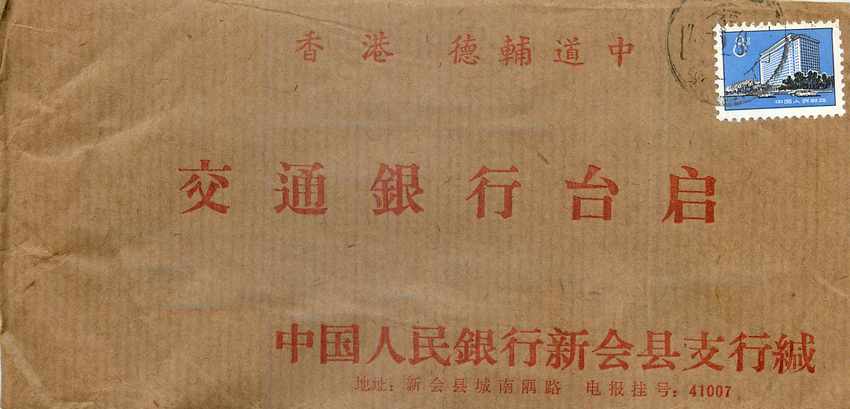 香港 德輔道中
8
中国人民邮政
交通銀行台启
中国人民銀行新会县支行缄
地址：新会县城南隅路 电报挂号：41007